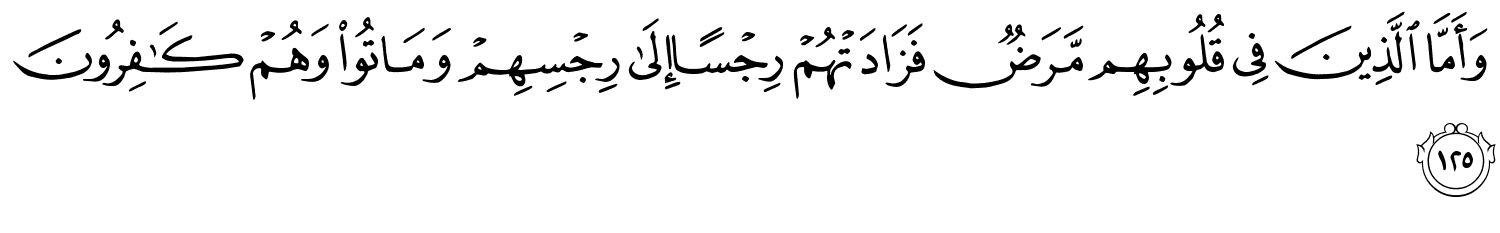 وَأَمَّا ٱلَّذِينَ فِى قُلُوبِهِم مَّرَضٌۭ فَزَادَتْهُمْ رِجْسًا إِلَىٰ رِجْسِهِمْ وَمَاتُوا۟ وَهُمْ كَـٰفِرُونَ
١٢٥